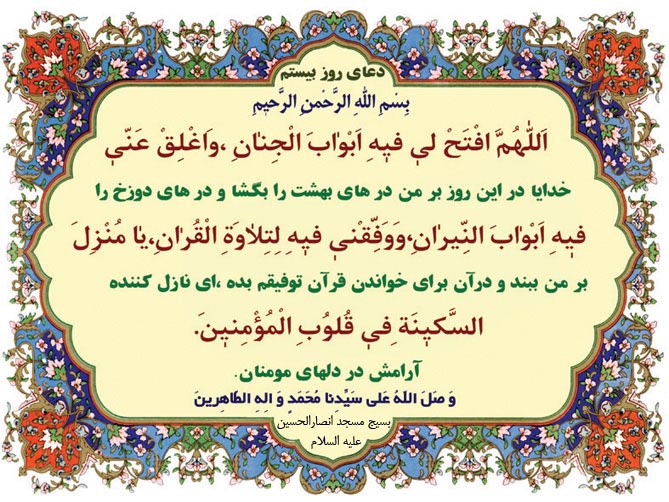 دعای روز بیستم
بِسْمِ اللهِ الرَّحْمنِ الرَّحیمِ
اَللّٰهُمَّ افْتَحْ لي فيهِ اَبْوٰابَ الْجِنٰانِ ،وَاَغْلِقْ عَنّي
خدایا در این روز بر من در های بهشت را بگشا و در های دوزخ را
فيهِ اَبْوٰابَ النّيرٰانِ،وَوَفِّقْني فيهِ لِتِلاٰوَةِ الْقُرٰانِ،يٰا مُنْزِلَ
بر من ببند و درآن برای خواندن قرآن توفیقم بده ،ای نازل کننده
السَّكينَة في قُلُوبِ الْمُؤْمِنينَ.
آرامش در دلهای مومنان.
وَ صَلَ اللهُ عَلی سَیِّدِنا مُحَمَدٍ وَ الِهِ الطاهِرینَ
بسیج مسجد انصارالحسین
علیه السلام